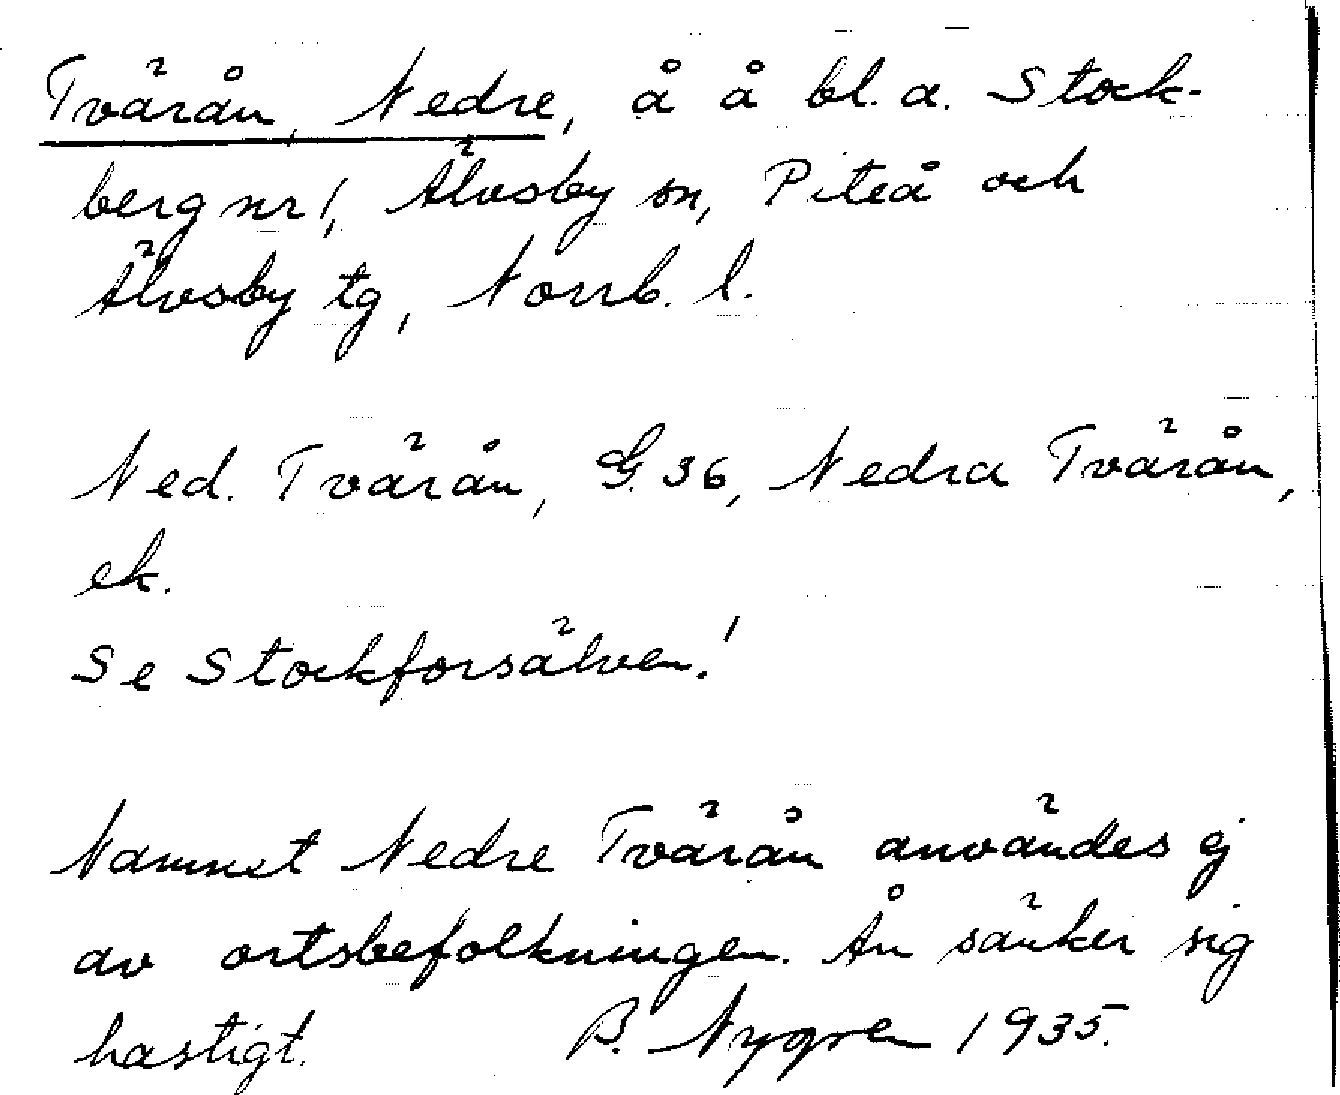 Tvärån, Nedre, å å bl. a. Stock-
berg nr 1, Älvsby sn, Piteå och
Älvsby tg, Norrb. l.
Ned. Tvärån, G. 36, Nedra Tvärån,
ek.
Se Stockforsälven!
Namnet Nedre Tvärån användes ej
av ortsbefolkningen. Ån sänker sig
hastigt. B. Nygren 1935.